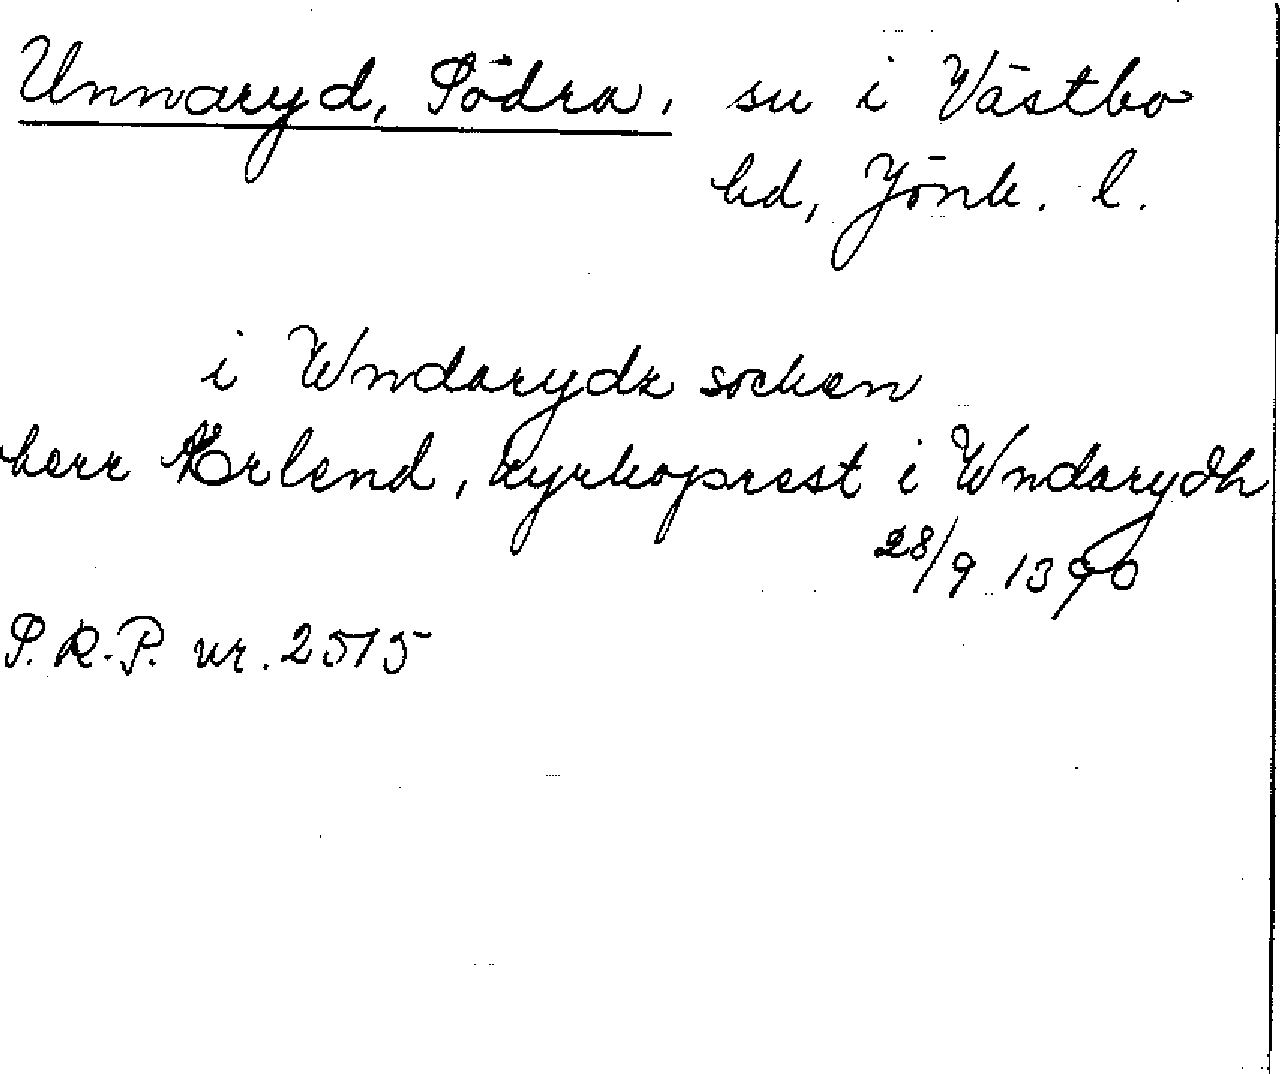 Unnaryd, Södra, sn i Västbo
hd, Jönk. l.
i Wndarydz socken
herr Ærlend, kyrkoprest i Wndarydh
28/9 1390
S. R. P. nr. 2515